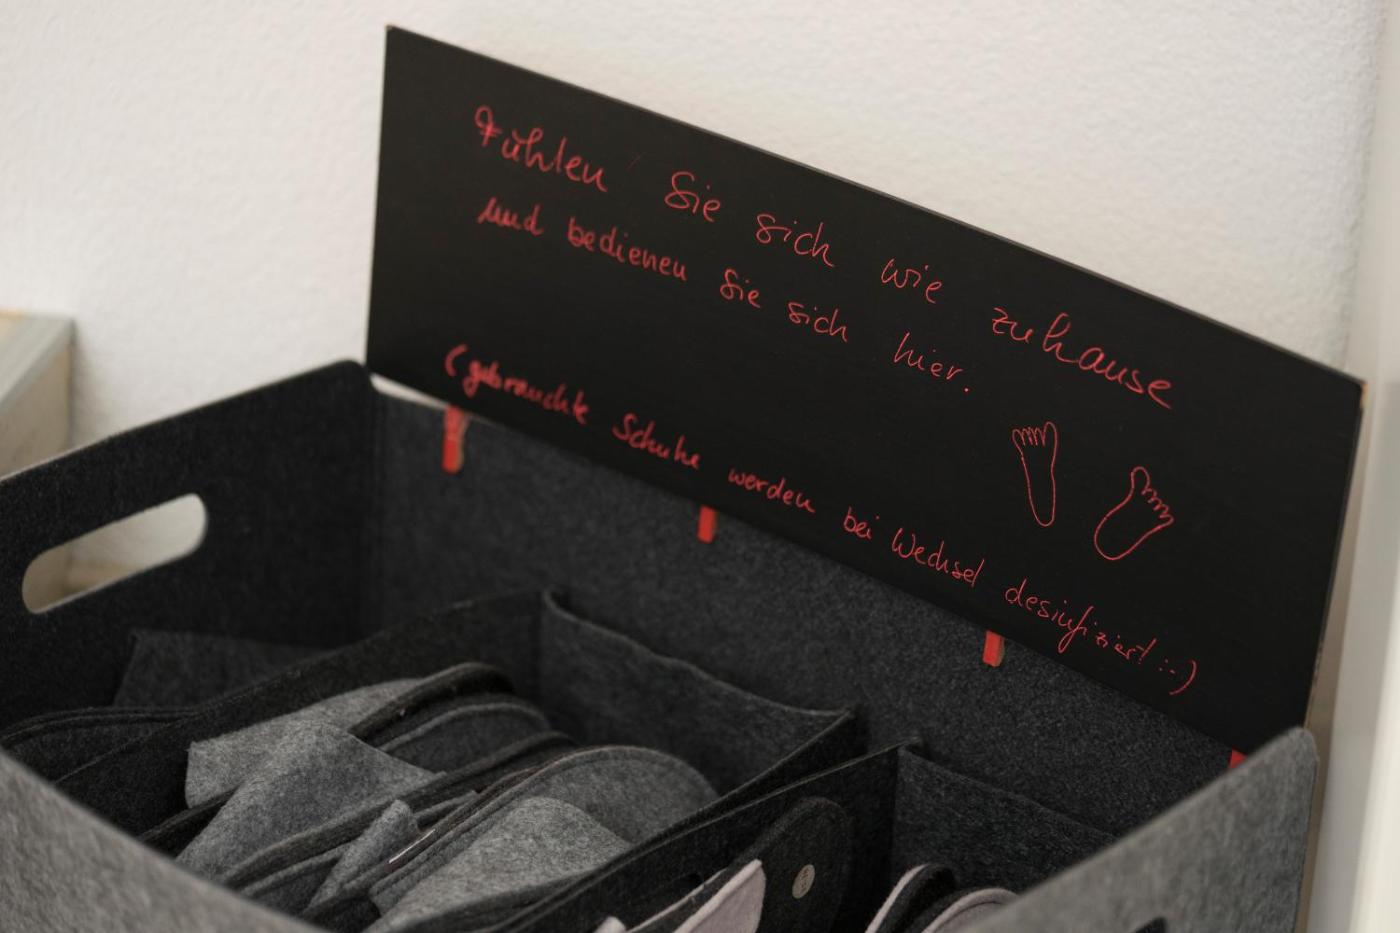 Fühlen Sie sich wie zuhause
und bedienen Sie sich hier.
(gebrauchte Schuhe werden bei Wechsel desinfiziert :-)